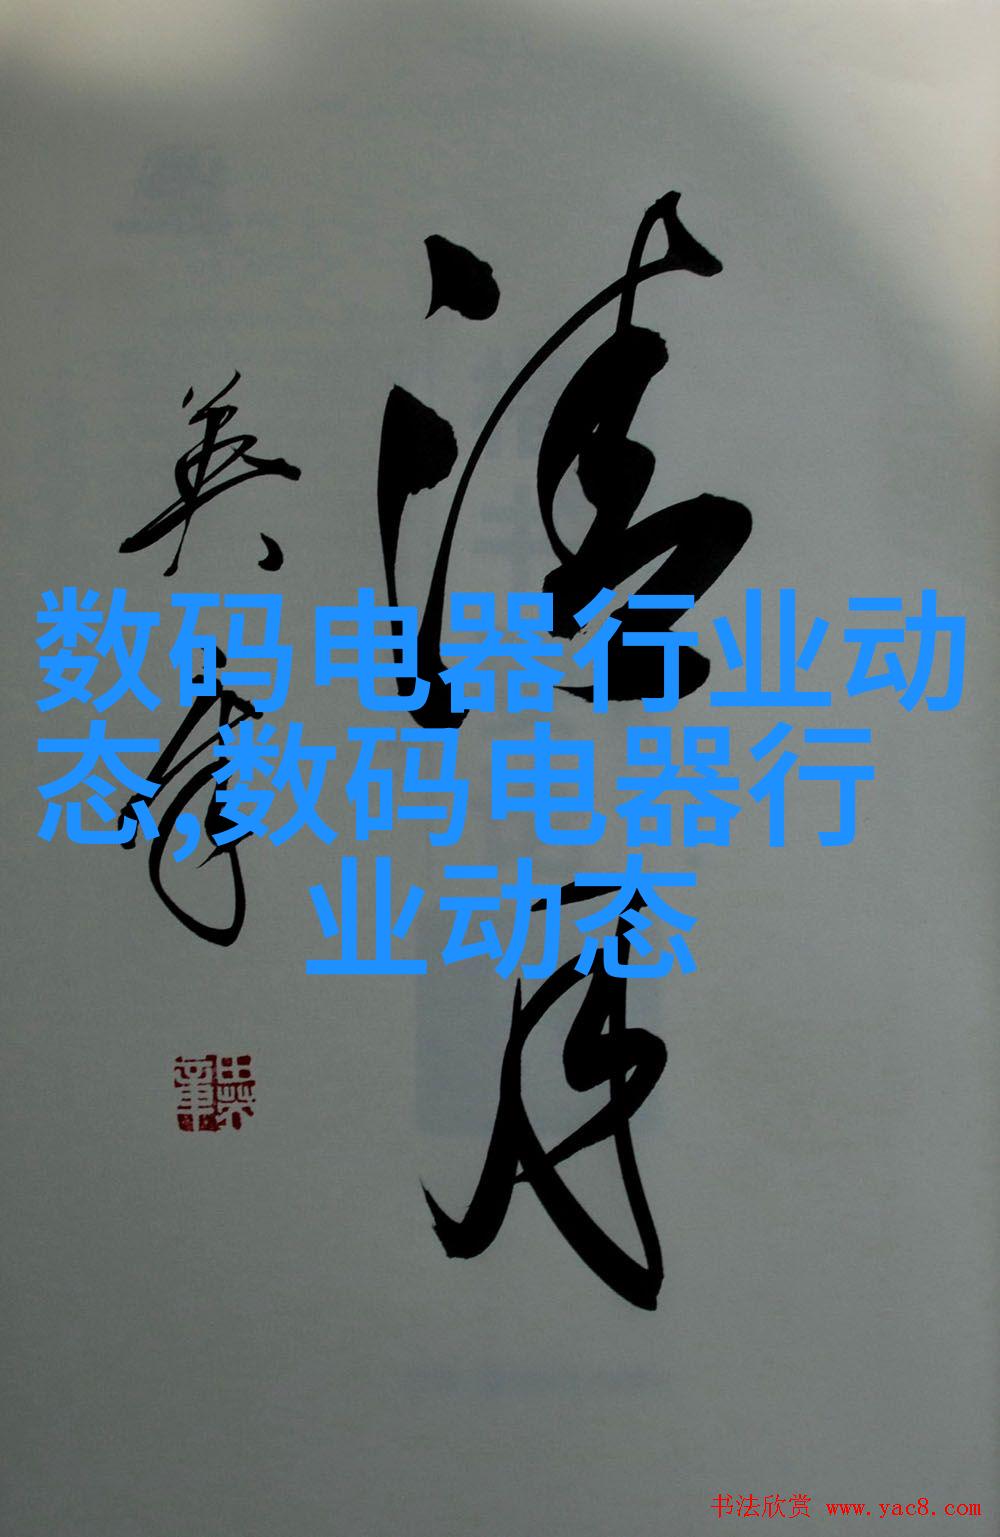 清
月
英章
数码电器行业动
态,数码电器行
业动态
书法欣赏 www.yac8.com